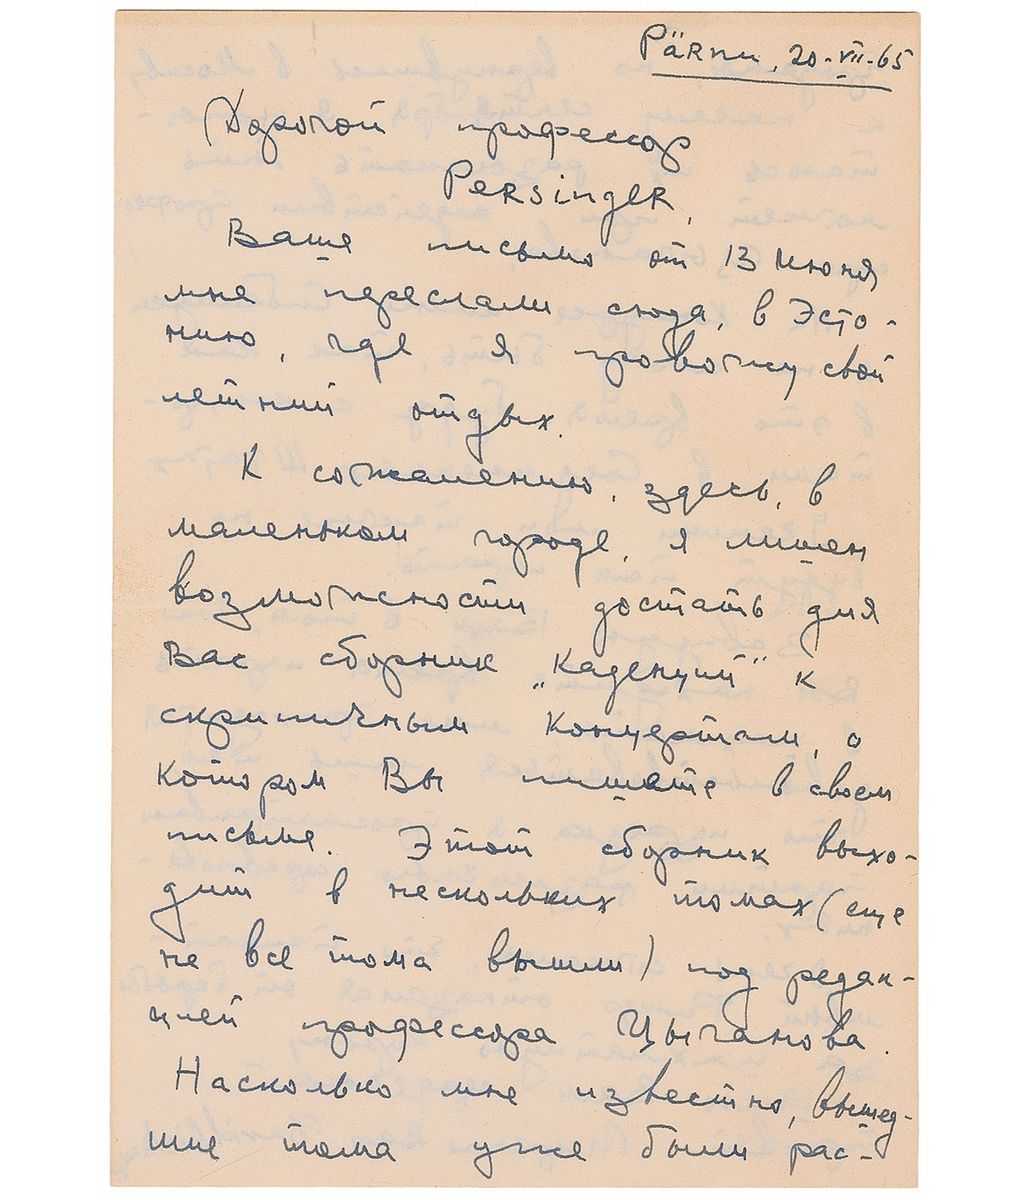 Pärnu, 20-VII-65
Дорогой профессор
Persinger,
Ваше письмо от 13 июня
мне переслали сюда, в Эсто-
нию, где я провожу свой
летний отдых.
К сожалению, здесь, в
маленьком городе, я лишен
возможности достать для
Вас сборник „Каденций" к
скрипичным концертам, о
котором Вы пишете в своем
письме. Этот сборник выхо-
дит в нескольких томах (еще
не все тома вышли) под редак-
цией профессора Цыганова.
Насколько мне известно, вышед-
шие тома уже были рас-